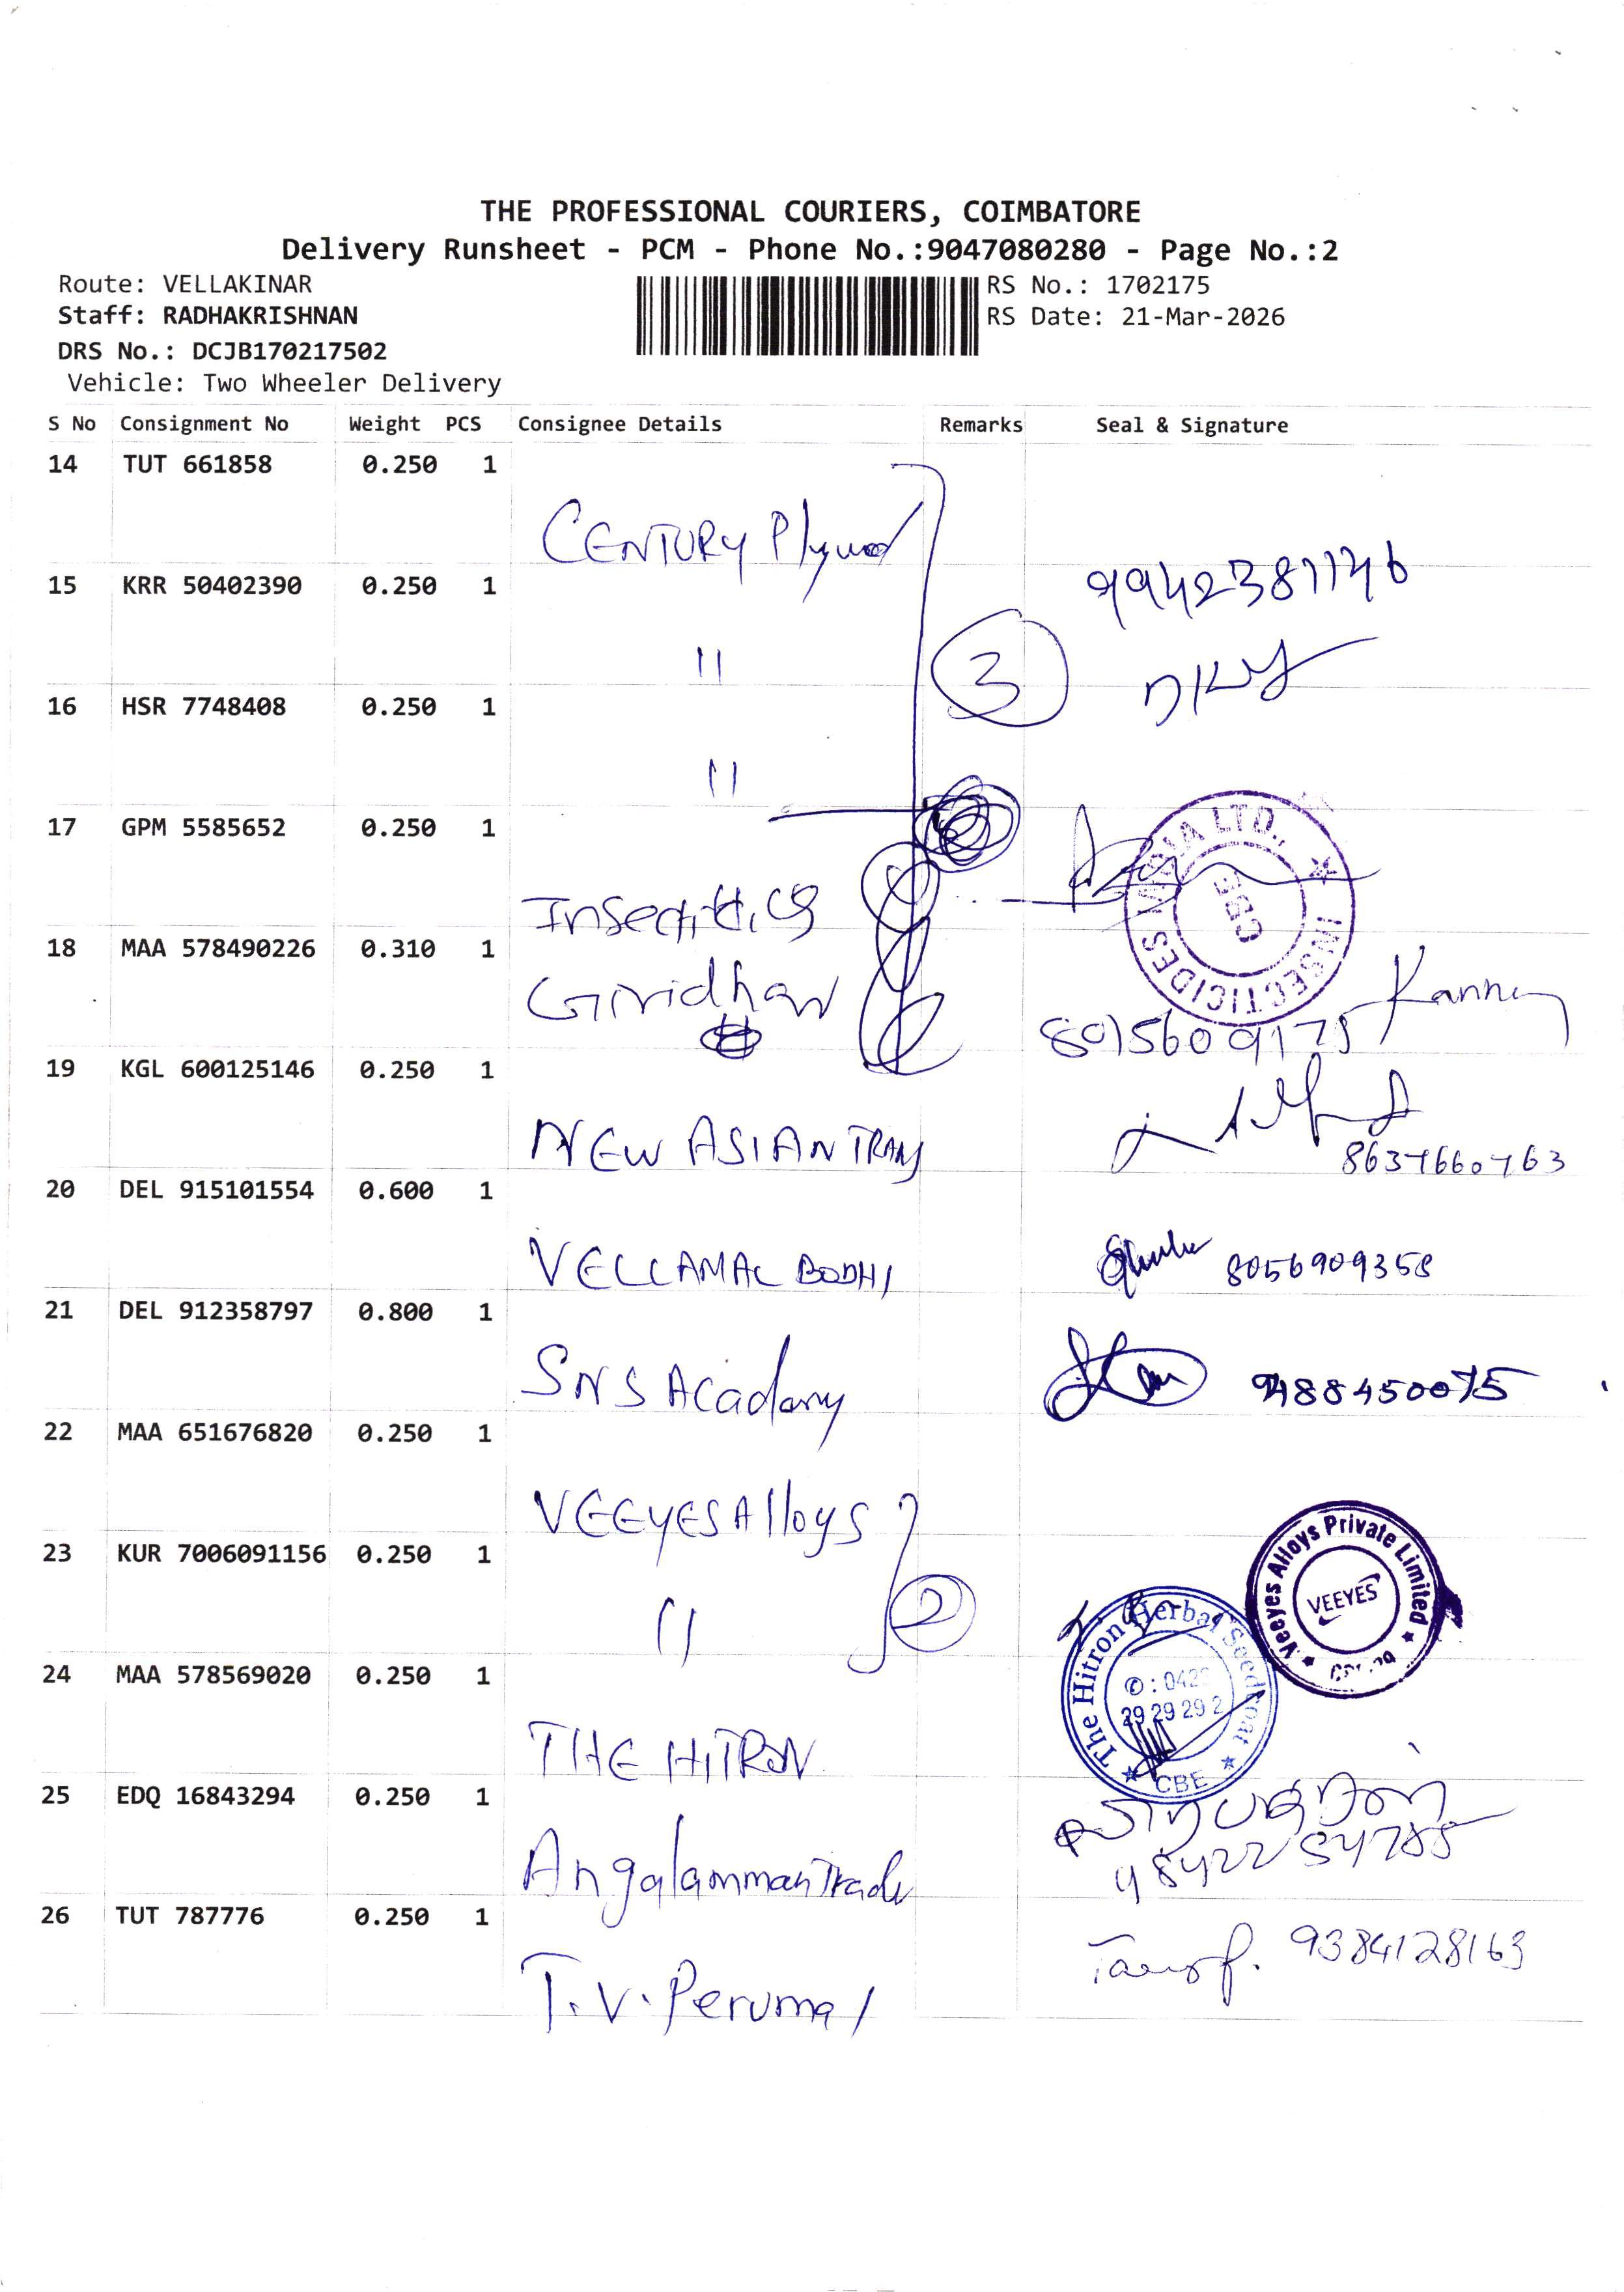 THE PROFESSIONAL COURIERS, COIMBATORE
Delivery Runsheet - PCM - Phone No.:9047080280 - Page No.:2
Route: VELLAKINAR
RS No.: 1702175
Staff: RADHAKRISHNAN
RS Date: 21-Mar-2026
DRS No.: DCJB170217502
Vehicle: Two Wheeler Delivery
S No Consignment No Weight PCS Consignee Details Remarks Seal & Signature
14 TUT 661858 0.250 1
CENTURY Plywood
15 KRR 50402390 0.250 1
9942381146
〃
3
16 HSR 7748408 0.250 1
〃
17 GPM 5585652 0.250 1
INSECTICIDES INDIA LTD., ★
CBE
18 MAA 578490226 0.310 1
Giridhar
8015609175 Kannan
19 KGL 600125146 0.250 1
NEW ASIAN TRANS
8637660763
20 DEL 915101554 0.600 1
VELLAMAL BODHI
8056909358
21 DEL 912358797 0.800 1
SNS Acadamy
9488450075
22 MAA 651676820 0.250 1
VEEYES Alloys
Veeyes Alloys Private Limited
VEEYES
23 KUR 7006091156 0.250 1
〃
2
The Hitron Herbal Seedcoat
✆: 042
29 29 29 2
★ CBE ★
24 MAA 578569020 0.250 1
THE HITRON
25 EDQ 16843294 0.250 1
Angalamman Trade
26 TUT 787776 0.250 1
9384128163
T.V. Perumal